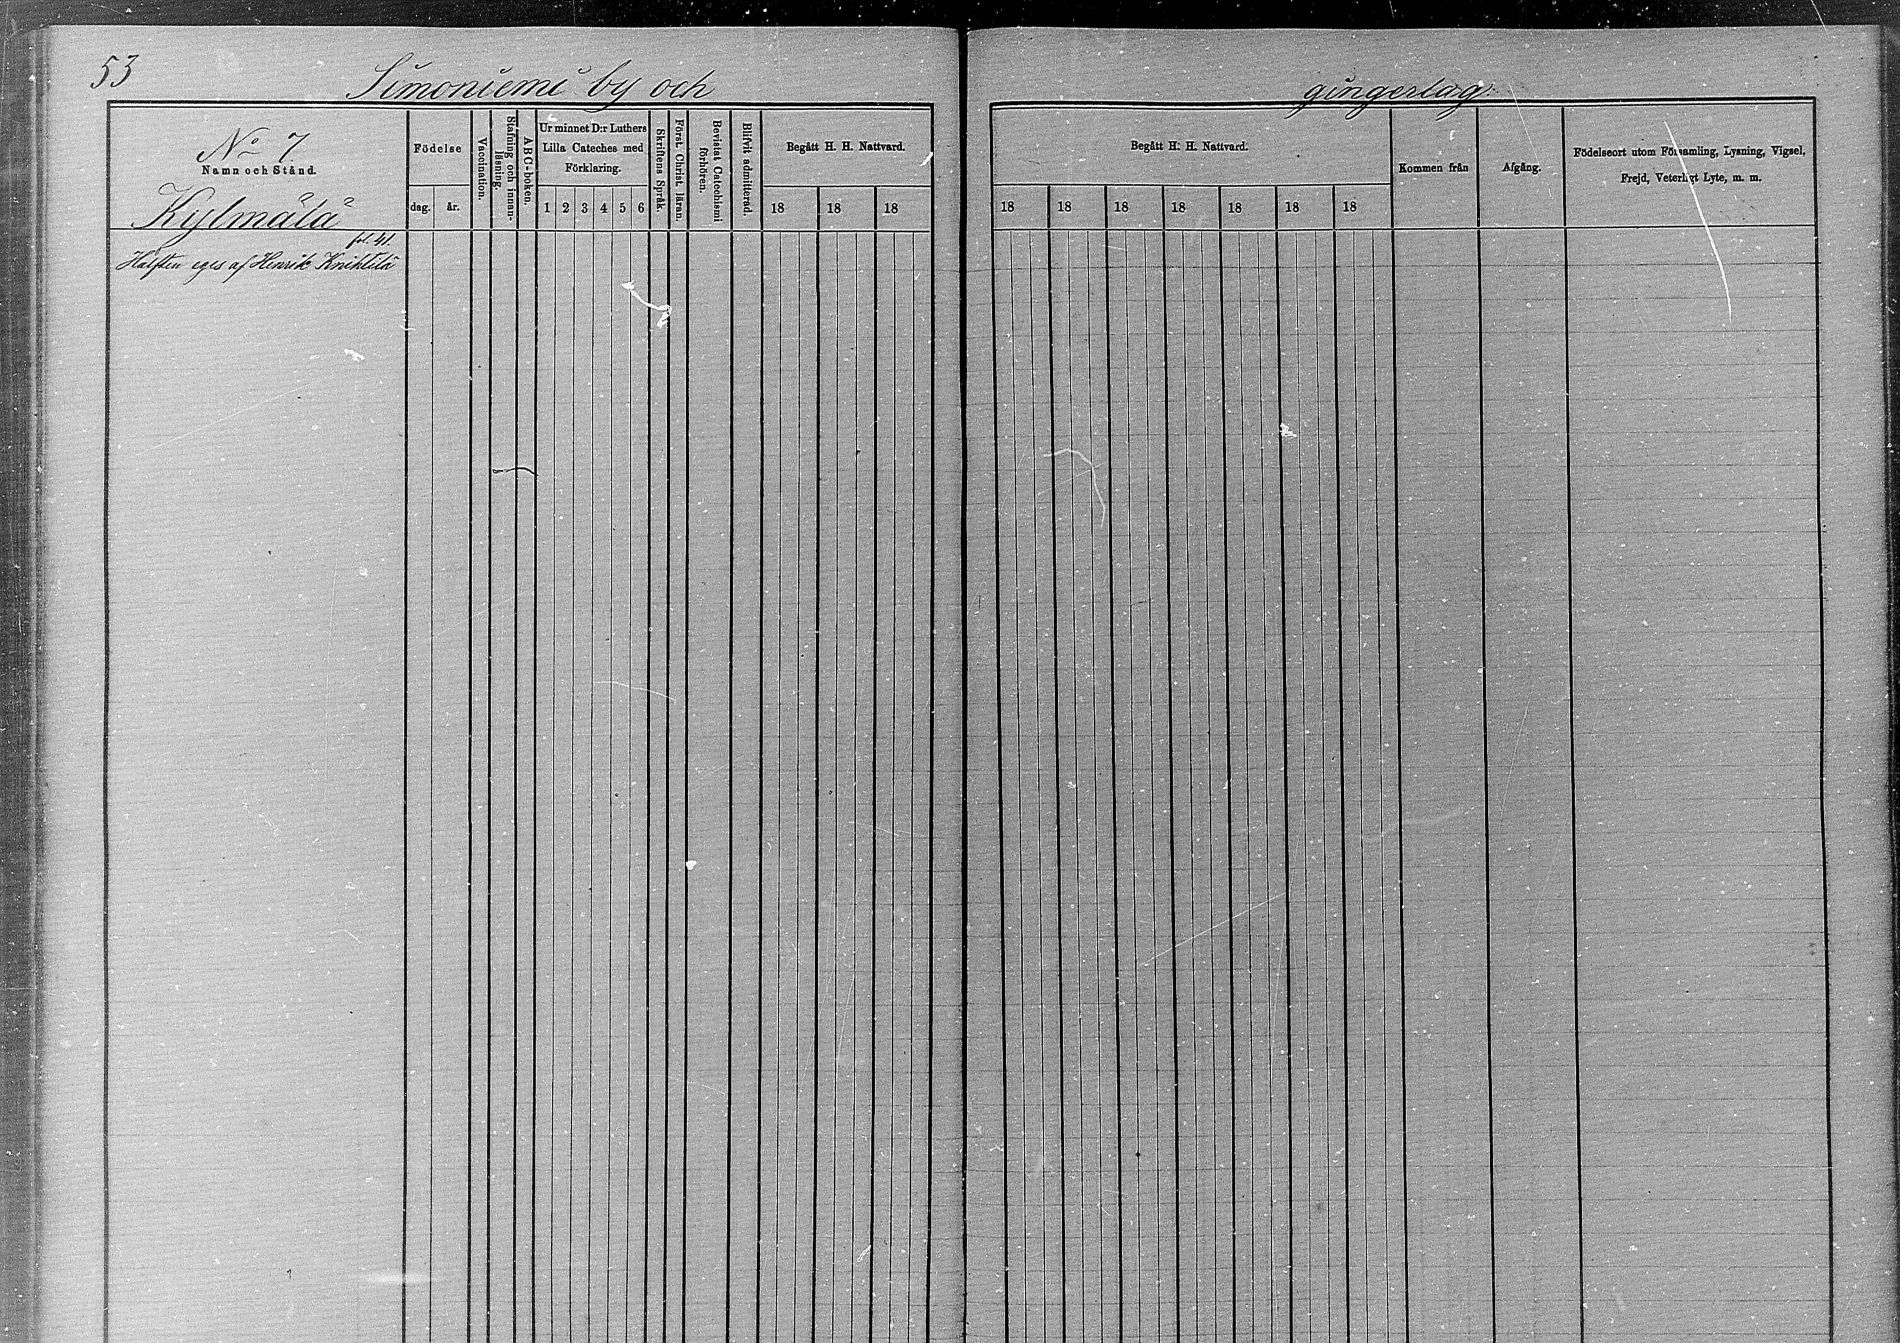 53
Simoniemi by och gingerlag
No 7
Namn och Stånd.
Kylmälä
Födelse
dag. år.
Vaccination.
Stafning och innan-
läsning.
ABC-boken.
Ur minnet D:r Luthers
Lilla Cateches med
Förklaring.
1 2 3 4 5 6
Skriftens Språk.
Först. Christ. läran.
Bevistat Catechismi
förhören.
Blifvit admitterad.
Begått H. H. Nattvard.
18 18 18
Begått H. H. Nattvard.
18 18 18 18 18 18 18
Kommen från
Afgång.
Födelseort utom Församling, Lysning, Vigsel,
Frejd, Veterligt Lyte, m. m.
fol. 41.
Hälften eges af Henrik Knihtilä